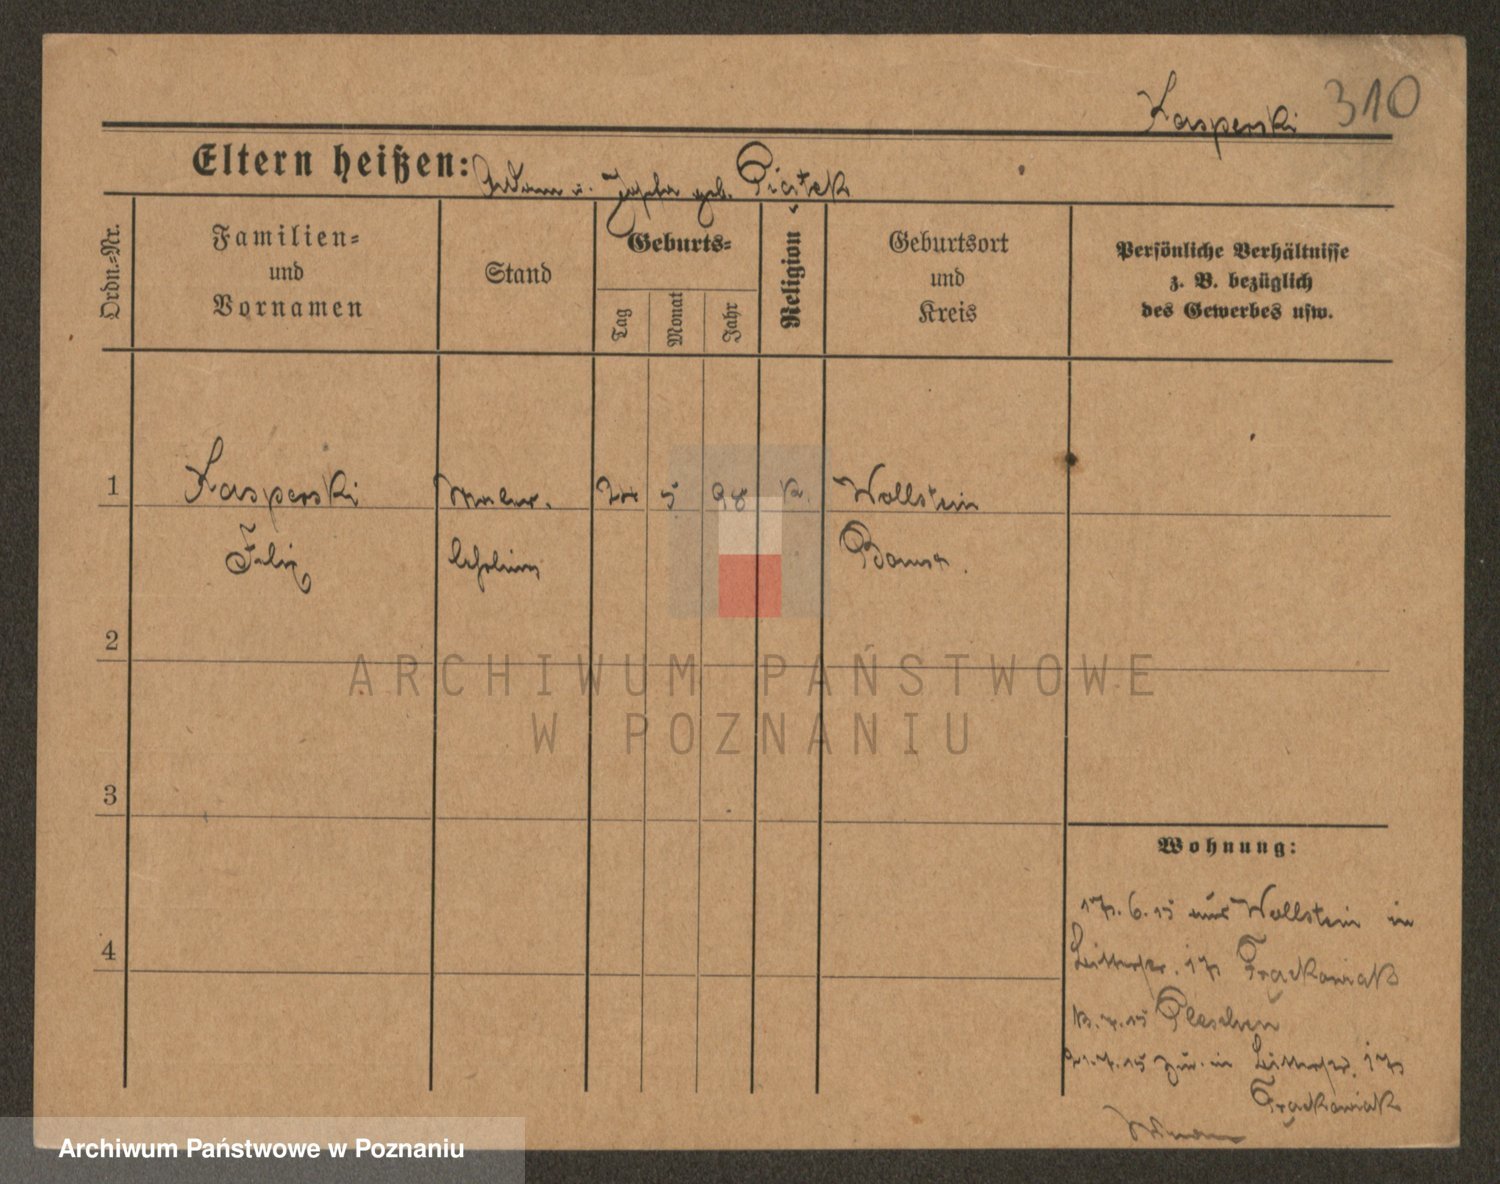 Kasperski 310
Eltern heißen: Adam u. Josefa geb. Piątek
Ordn.-Nr.
Familien-
und
Vornamen
Stand
Geburts-
Tag
Monat
Jahr
Religion
Geburtsort
und
Kreis
Persönliche Verhältnisse
z. B. bezüglich
des Gewerbes usw.
1 Kasperski Maler- 5 98 k. Wollstein
Felix lehrling Bomst.
2
3
4
Wohnung:
17.6.15 aus Wollstein in
17 Frąckowiak
Pleschen
21.7.15 zur. in 17
Frąckowiak
ARCHIWUM PAŃSTWOWE
W POZNANIU
Archiwum Państwowe w Poznaniu